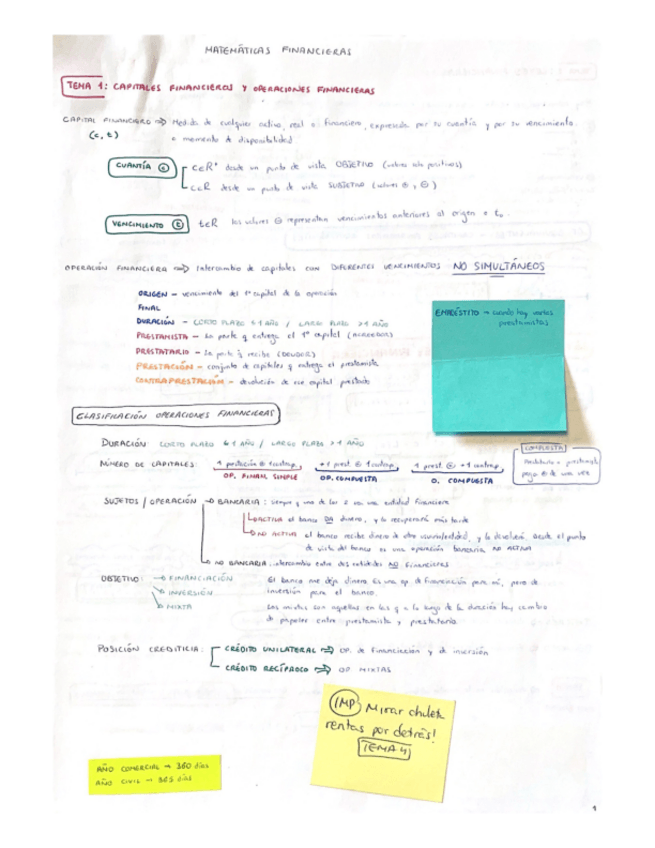 MATEMÁTICAS FINANCIERAS
TEMA 1: CAPITALES FINANCIEROS Y OPERACIONES FINANCIERAS
CAPITAL FINANCIERO => Medida de cualquier activo, real o financiero, expresada por su cuantía y por su vencimiento
(c, t) o momento de disponibilidad
CUANTÍA (c) c∈R+ desde un punto de vista OBJETIVO (valores solo positivos)
c∈R desde un punto de vista SUBJETIVO (valores ⊕ y ⊖)
VENCIMIENTO (t) t∈R los valores ⊖ representan vencimientos anteriores al origen o t₀
OPERACIÓN FINANCIERA => Intercambio de capitales con DIFERENTES VENCIMIENTOS NO SIMULTÁNEOS
ORIGEN – vencimiento del 1º capital de la operación
FINAL
DURACIÓN – CORTO PLAZO ≤ 1 AÑO / LARGO PLAZO > 1 AÑO
PRESTAMISTA – La parte q entrega el 1º capital (ACREEDOR)
PRESTATARIO – La parte q recibe (DEUDOR)
PRESTACIÓN – conjunto de capitales q entrega el prestamista
CONTRAPRESTACIÓN – devolución de ese capital prestado
EMPRÉSTITO → cuando hay varios
prestamistas
CLASIFICACIÓN OPERACIONES FINANCIERAS
DURACIÓN CORTO PLAZO ≤ 1 AÑO / LARGO PLAZO > 1 AÑO
COMPUESTA
NÚMERO DE CAPITALES: 1 prestación 1 contrap. +1 prest. 1 contrap. 1 prest. +1 contrap.
OP. FINAN. SIMPLE OP. COMPUESTA O. COMPUESTA
de una vez
SUJETOS / OPERACIÓN → BANCARIA: siempre q una de las 2 sea una entidad financiera
ACTIVA el banco DA dinero, y lo recuperará más tarde
NO ACTIVA el banco recibe dinero de otra , y lo devolverá. Desde el punto
de vista del banco es una operación bancaria NO ACTIVA
NO BANCARIA: intercambio entre dos entidades NO financieras
OBJETIVO: → FINANCIACIÓN El banco me deja dinero es una op. de financiación para mí, pero de
INVERSIÓN inversión para el banco.
MIXTA Las mixtas son aquellas en las q a lo largo de la duración hay cambio
de papeles entre prestamista y prestatario.
POSICIÓN CREDITICIA: CRÉDITO UNILATERAL => OP. de financiación y de inversión
CRÉDITO RECÍPROCO => OP MIXTAS
IMP Mirar chuleta
rentas por detrás!
TEMA 4
AÑO COMERCIAL → 360 días
AÑO CIVIL → 365 días
1